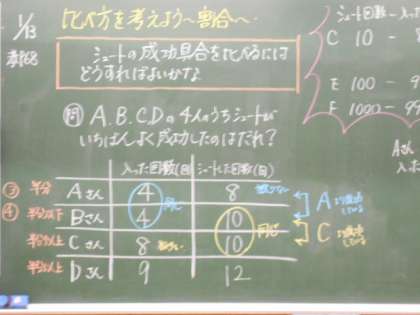 1/13
比べ方を考えよう〜割合〜
シュートの成功具合を比べるには
どうすればよいかな
問 A.B.C.Dの4人のうちシュートが
いちばんよく成功したのはだれ?
入った回数(回) シュートした回数(回)
③ 半分 Aさん 4 8
④ 半分以下 Bさん 4 10
半分以上 Cさん 8 10
半分以上 Dさん 9 12
同じ
同じ
A
C
シュート回数
C 10 - 8
E 100 - 9
F 1000 - 99
Aさん
入